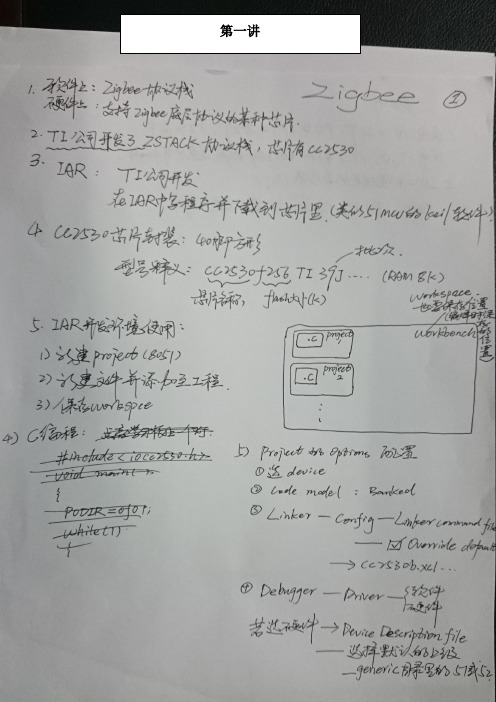 第一讲
Zigbee ①
1. 软件上：Zigbee协议栈
硬件上：支持Zigbee底层协议的某种芯片.
2. TI公司开发了ZSTACK协议栈，芯片有CC2530
3. IAR：TI公司开发
在IAR中写程序并下载到芯片里.(类似51mcu的keil软件)
4. CC2530芯片封装：40脚方形
批次.
型号释义：CC2530f256 TI 39J .... (RAM 8K)
芯片名称, flash大小(K)
workspace
5. IAR开发环境使用：
workbench
1) 新建project (8051)
.C project 1
2) 新建文件并添加至工程.
.C project 2
3) 保存workspce
4) C编程：
#include<iocc2530.h>
void main()
{
P0DIR=0x01;
while(1)
5) Project 的 Options 配置
① 选 device
② code model : Banked
③ Linker — Config — Linker command file
— ☑ Override default
→ CC2530b.xcl ...
④ Debugger — Driver — 软件
硬件
若选硬件 → Device Description file
— 选择默认的上级
— generic目录里的51或52